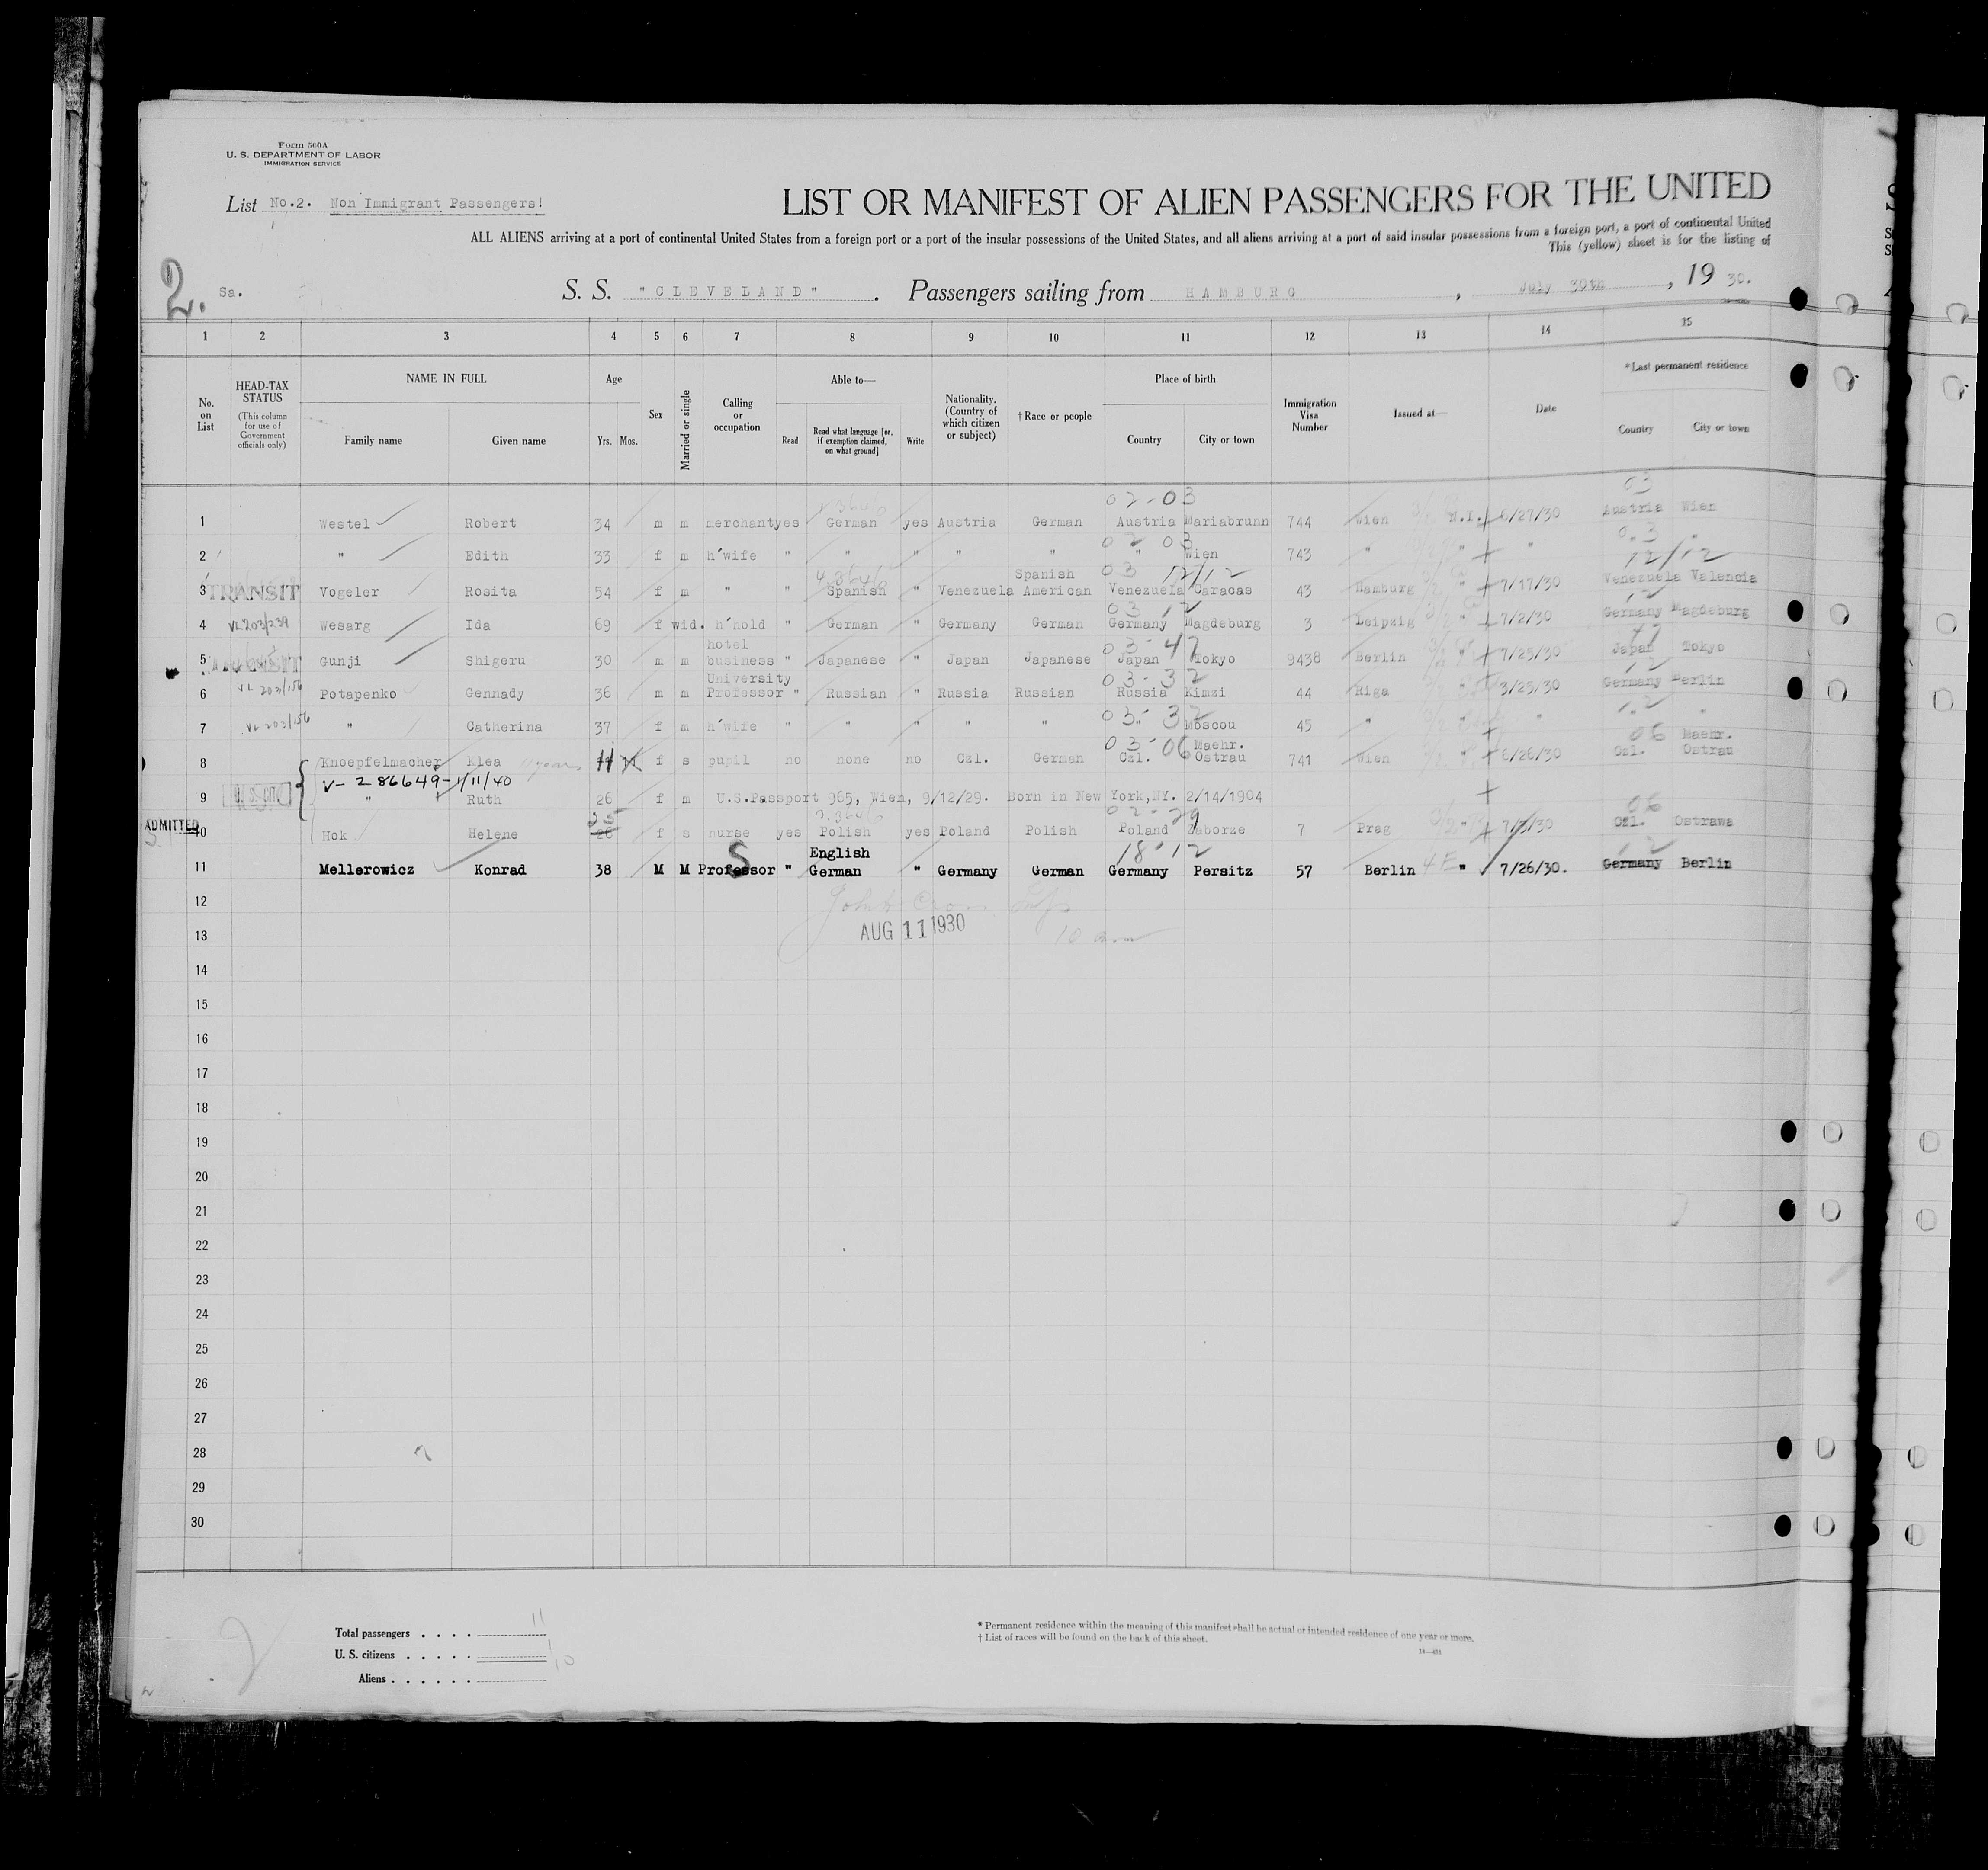 Form 500A
U. S. DEPARTMENT OF LABOR
IMMIGRATION SERVICE
List No.2. Non Immigrant Passengers!
LIST OR MANIFEST OF ALIEN PASSENGERS FOR THE UNITED
ALL ALIENS arriving at a port of continental United States from a foreign port or a port of the insular possessions of the United States, and all aliens arriving at a port of said insular possessions from a foreign port, a port of continental United
This (yellow) sheet is for the listing of
2. Sa.
S. S. "CLEVELAND" . Passengers sailing from HAMBURG , July 30th , 19 30.
1 2 3 4 5 6 7 8 9 10 11 12 13 14 15
No. on List
HEAD-TAX STATUS
(This column for use of Government officials only)
NAME IN FULL
Family name Given name
Age
Yrs. Mos.
Sex
Married or single
Calling or occupation
Able to—
Read
Read what language [or, if exemption claimed, on what ground]
Write
Nationality. (Country of which citizen or subject)
† Race or people
Place of birth
Country City or town
Immigration Visa Number
Issued at—
Date
*Last permanent residence
Country City or town
02-03 03
1 Westel Robert 34 m m merchant yes German yes Austria German Austria Mariabrunn 744 Wien N.I. 6/27/30 Austria Wien
02 03 03
2 " Edith 33 f m h'wife " " " " " " Wien 743 " " " " "
03 12/12 12/12
3 TRANSIT Vogeler Rosita 54 f m " " Spanish " Venezuela Spanish American Venezuela Caracas 43 Hamburg " 7/17/30 Venezuela Valencia
03 12 12
4 VL 203/239 Wesarg Ida 69 f wid. h'hold " German " Germany German Germany Magdeburg 3 Leipzig " 7/2/30 Germany Magdeburg
03-47 47
5 TRANSIT Gunji Shigeru 30 m m hotel business " Japanese " Japan Japanese Japan Tokyo 9438 Berlin " 7/25/30 Japan Tokyo
03-32 12
6 VL 203/156 Potapenko Gennady 36 m m University Professor " Russian " Russia Russian Russia Kimzi 44 Riga " 3/25/30 Germany Berlin
03- 32 12
7 VL 203/156 " Catherina 37 f m h'wife " " " " " " Moscou 45 " " " " "
03-06 06
8 Knoepfelmacher Klea 11 years 11 f s pupil no none no Czl. German Czl. Maehr. Ostrau 741 Wien 6/26/30 Czl. Maehr. Ostrau
V- 286649-1/11/40
9 " Ruth 26 f m U.S.Passport 965, Wien, 9/12/29. Born in New York,NY. 2/14/1904
25 02-29 06
ADMITTED
10 Hok Helene 26 f s nurse yes Polish yes Poland Polish Poland Zaborze 7 Prag " 7/3/30 Czl. Ostrawa
S 18-12 12
11 Mellerowicz Konrad 38 M M Professor " English German " Germany German Germany Persitz 57 Berlin " 7/26/30. Germany Berlin
12
13 AUG 11 1930 10 am
14
15
16
17
18
19
20
21
22
23
24
25
26
27
28
29
30
Total passengers . . . . 11
U. S. citizens . . . . . 1
Aliens . . . . . . 10
* Permanent residence within the meaning of this manifest shall be actual or intended residence of one year or more.
† List of races will be found on the back of this sheet.